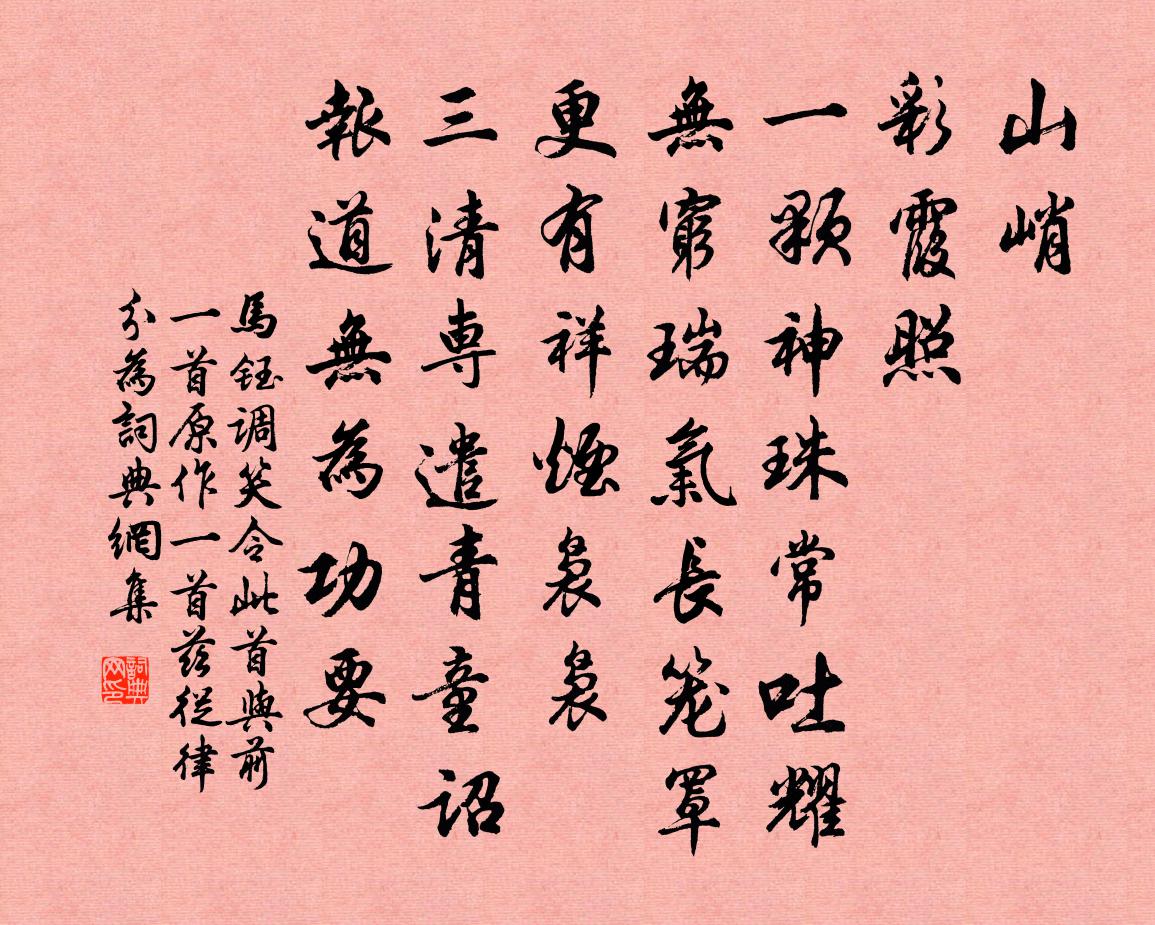 山峭
彩霞照
一顆神珠常吐耀
無窮瑞氣長笼罩
更有祥煙裊裊
三清専遣青童詔
報道無為功要
馬鈺调笑令此首與前
一首原作一首兹從律
分為詞典網集
詞典
网印